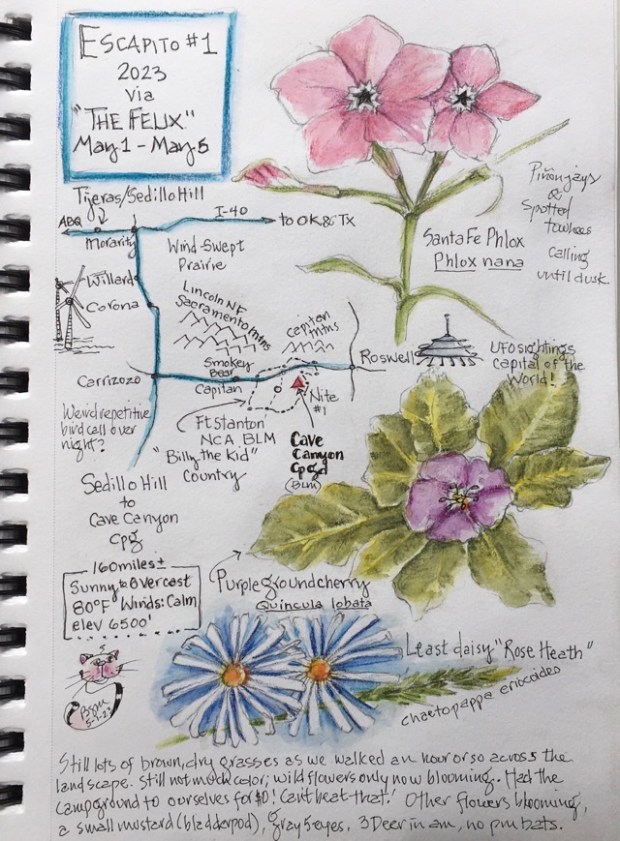 ESCAPITO #1
2023
Via
"THE FELIX"
May 1 - May 5
Tijeras/Sedillo Hill
ABQ
I-40
to OK & TX
Moriarity
Wind-Swept
Prairie
Willard
Corona
Lincoln NF
Sacramento mtns
Capitan
mtns
Smokey
Bear
Capitan
Carrizozo
Roswell
UFO sightings
Capital of the
World!
Nite
#1
Ft Stanton
NCA BLM
"Billy the Kid"
Country
Cave
Canyon
Cpgd
(BLM)
Weird repetitive
bird call over
night?
Sedillo Hill
to
Cave Canyon
Cpg
160 miles ±
Sunny to Overcast
80°F Winds: Calm
elev 6500'
Santa Fe Phlox
Phlox nana
Pinon jays
&
Spotted
towhees
calling
until dusk
Purple ground cherry
Quincula lobata
Least daisy "Rose Heath"
Chaetopappa ericoides
5-1-23
Still lots of brown, dry grasses as we walked an hour or so across the
landscape. Still not much color; wildflowers only now blooming. Had the
Campground to ourselves for $0! Can't beat that! Other flowers blooming,
a small mustard (bladderpod), gray 5 eyes, 3 Deer in am, no pm bats.